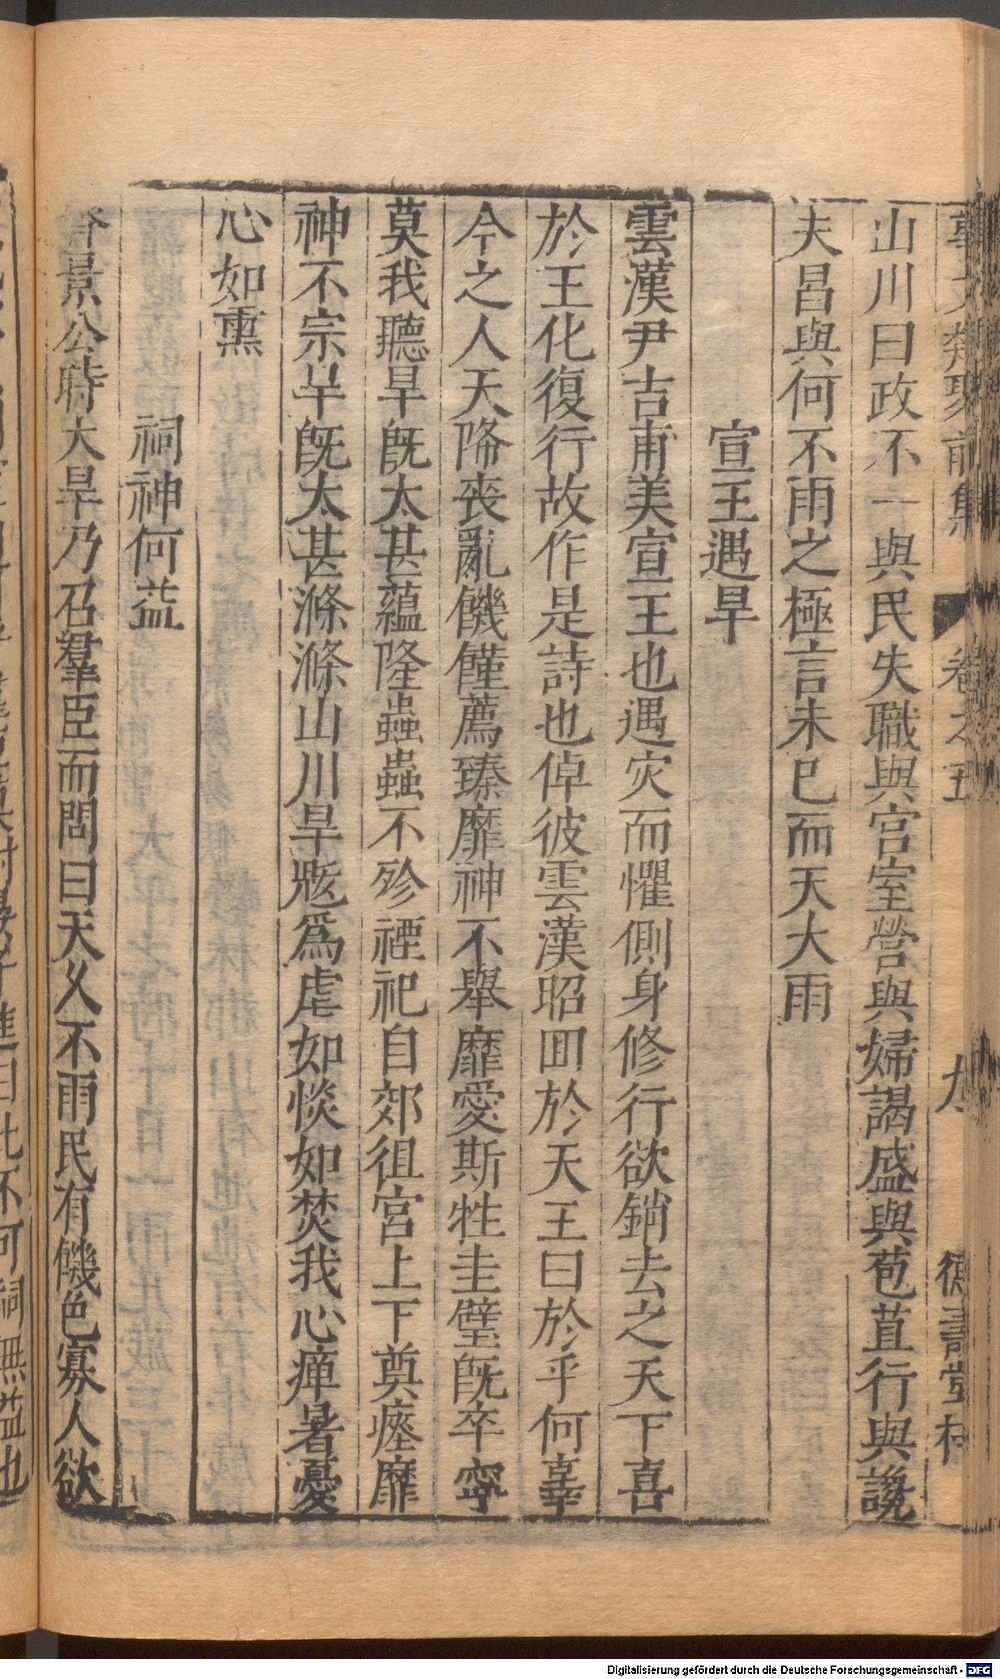 事文類聚前集 卷之五 九 德壽堂梓
山川曰政不一與民失職與宫室營與婦謁盛與苞苴行與讒
夫昌與何不雨之極言未已而天大雨
宣王遇旱
雲漢尹吉甫美宣王也遇灾而懼側身修行欲銷去之天下喜
於王化復行故作是詩也倬彼雲漢昭回於天王曰於乎何辜
今之人天降丧亂饑饉薦臻靡神不舉靡愛斯牲圭璧旣卒寧
莫我聽旱旣太甚蘊隆蟲蟲不殄禋祀自郊徂宮上下奠瘞靡
神不宗旱旣太甚滌滌山川旱魃爲虐如惔如焚我心憚暑憂
心如熏
祠神何益
齊景公時大旱乃召羣臣而問曰天乆不雨民有饑色寡人欲
進曰此不可祠無益也
Digitalisierung gefördert durch die Deutsche Forschungsgemeinschaft - DFG